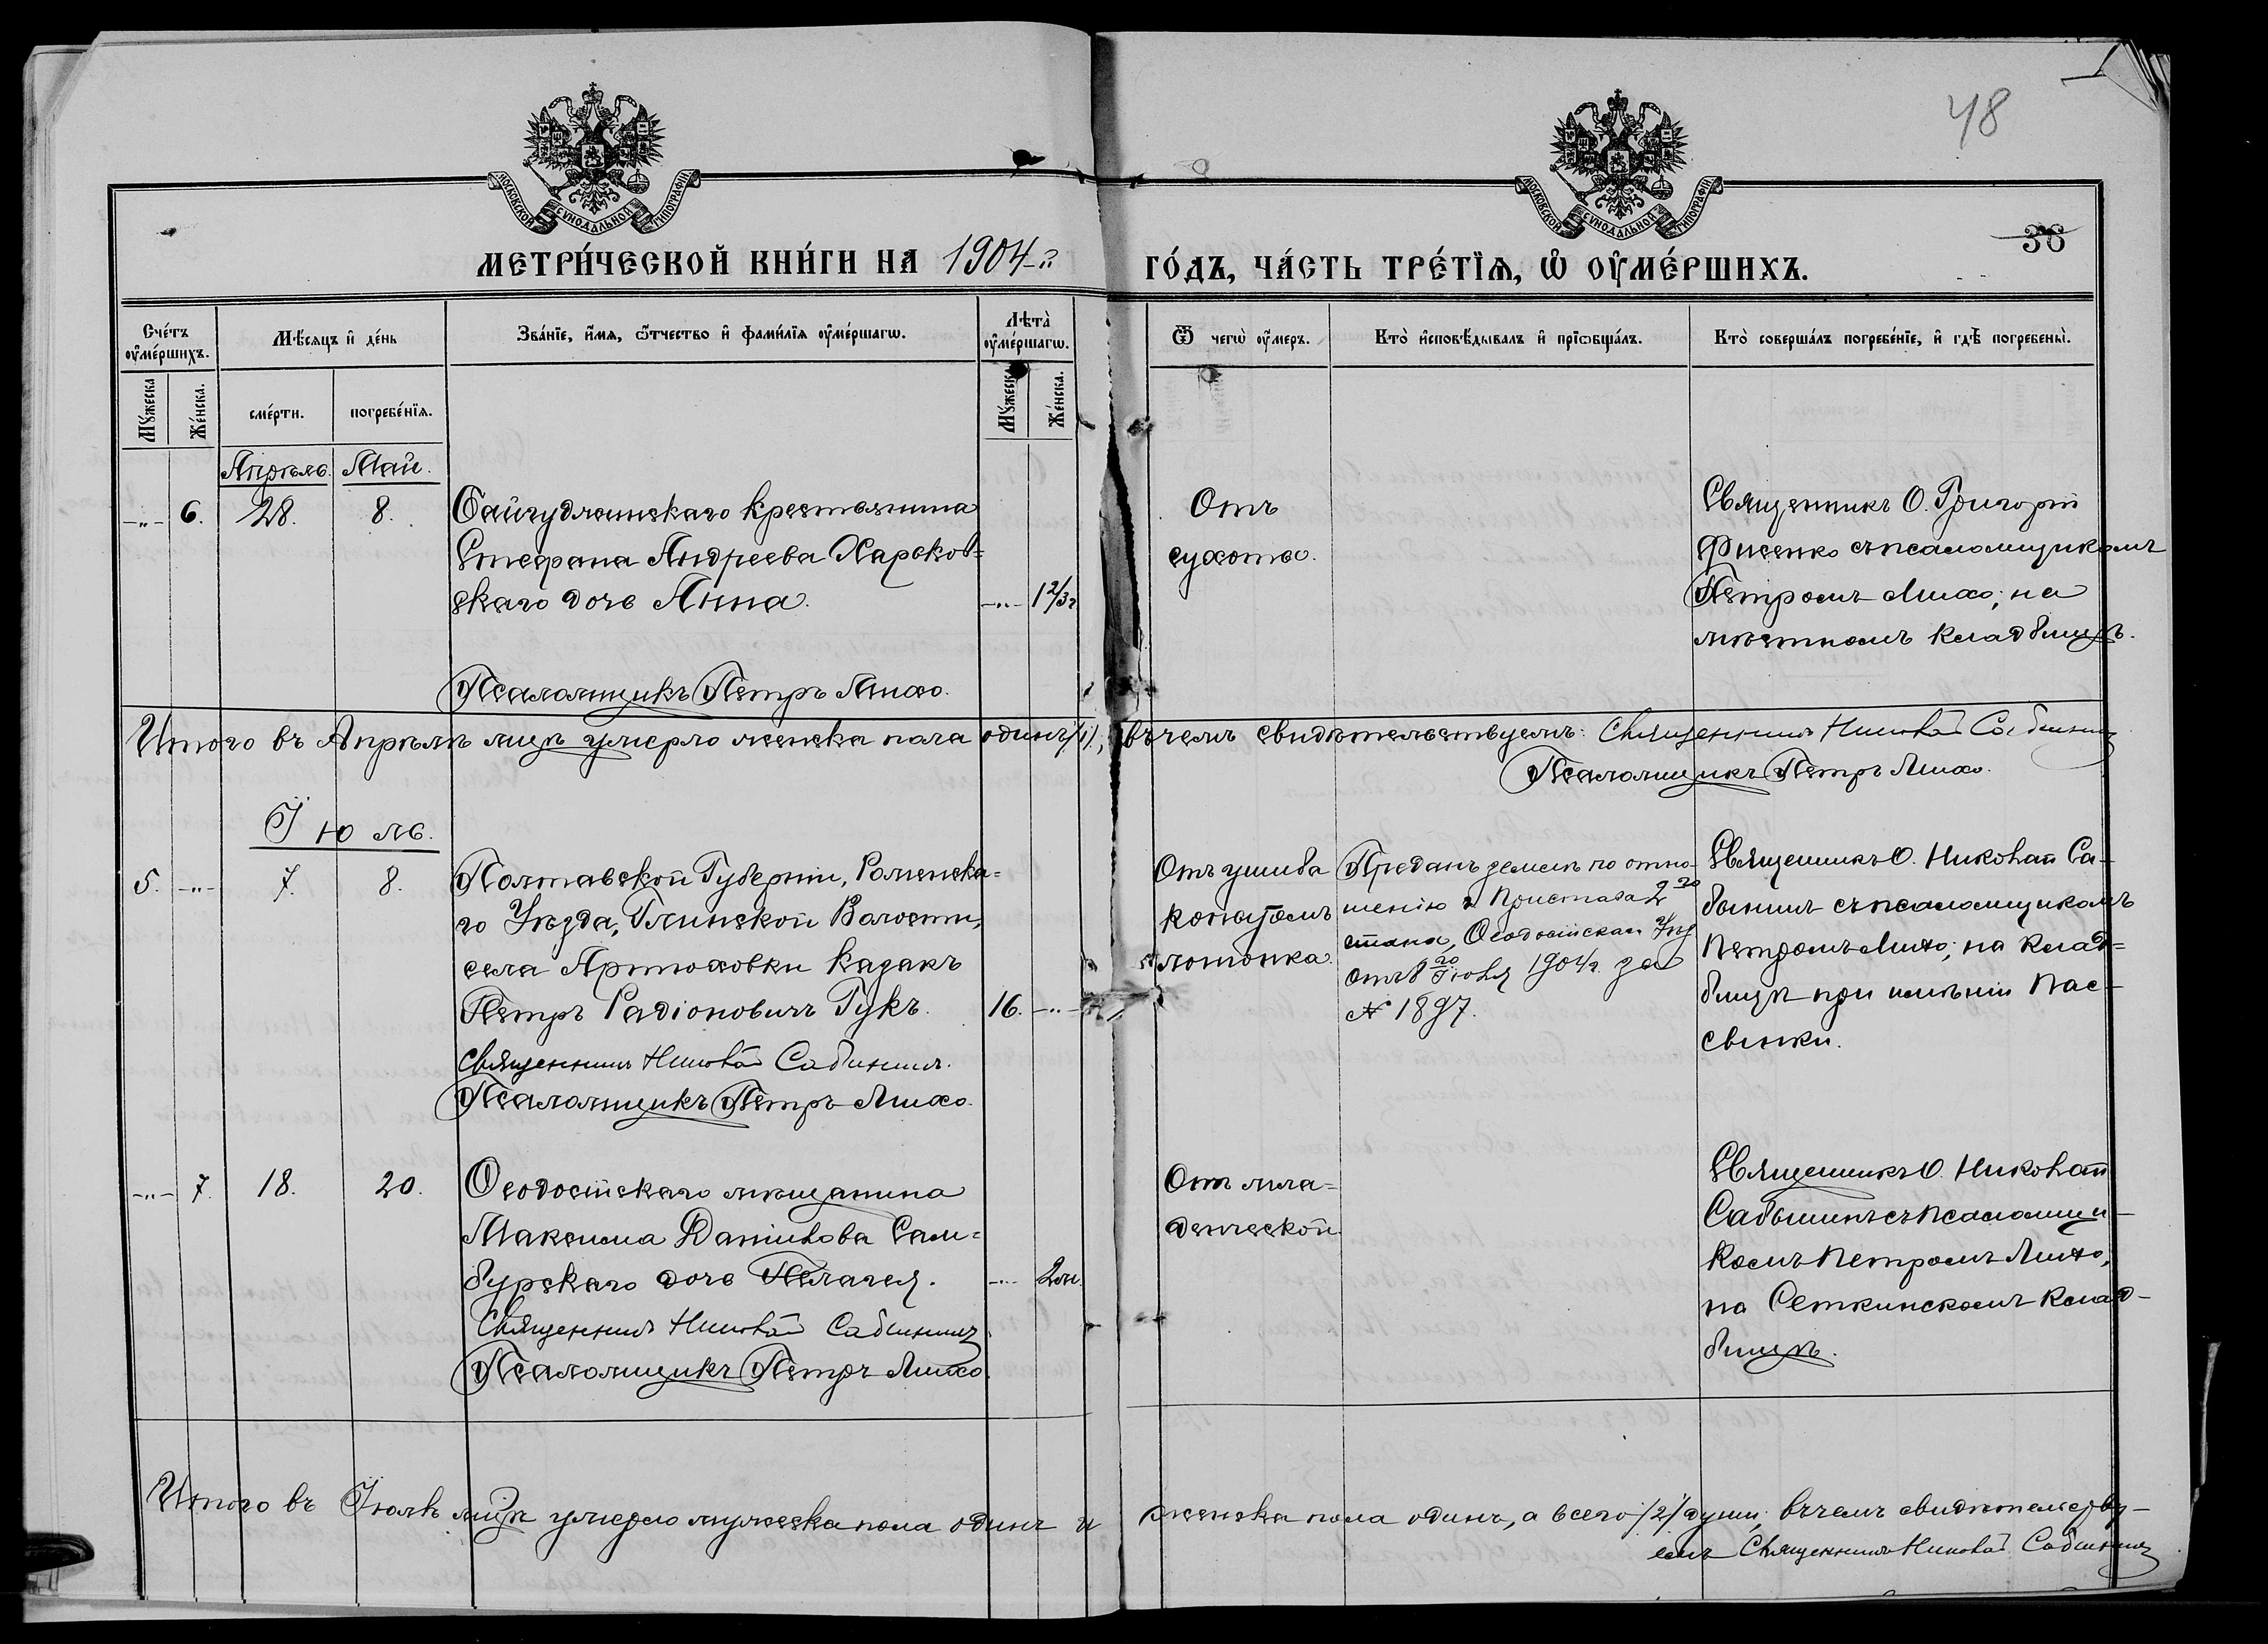 48
38
МОСКОВСКОЙ СѴНОДАЛЬНОЙ ТИПОГРАФІИ
МОСКОВСКОЙ СѴНОДАЛЬНОЙ ТИПОГРАФІИ
МЕТРИ́ЧЕСКОЙ КНИ́ГИ НА 1904-й
ГО́ДЪ, ЧА́СТЬ ТРЕ́ТЇѦ, Ѡ҆ ОУ҆МЕ́РШИХЪ.
Сче́тъ оу҆ме́ршихъ.
Мѣ́сѧцъ и҆ де́нь
Зва́нїе, и҆́мѧ, ѻ҆́тчество и҆ фами́лїѧ оу҆ме́ршагѡ.
Лѣта̀ оу҆ме́ршагѡ.
Ѿ чегѡ̀ оу҆́меръ.
Кто̀ и҆сповѣ́дывалъ и҆ прїѡбща́лъ.
Кто̀ соверша́лъ погребе́нїе, и҆ гдѣ̀ погребены̀.
Мꙋ́жеска
Же́нска.
сме́рти.
погребе́нїѧ.
Мꙋ́жеска
Же́нска.
Апрѣль. Май.
-"- 6. 28. 8.
Байгудженскаго крестьянина
Стефана Андреева Харьков=
скаго дочь Анна. -"- 1 2/3 г
Псаломщикъ Петръ Лихо.
Отъ
сухоты.
Священникъ О. Григорій
Фисенко съ псаломщикомъ
Петромъ Лихо; на
мѣстномъ кладбищѣ.
Итого въ Апрѣлѣ мцѣ умерло женска пола одинъ /1/, въ чемъ свидѣтельствуемъ: Священникъ Николай Сабынинъ
Псаломщикъ Петръ Лихо.
Іюль.
5. -"- 7. 8.
Полтавской Губерніи, Роменска=
го Уѣзда, Глинской Волости,
села Артюховки казакъ
Петръ Радіоновичъ Гукъ. 16. -"-
Священникъ Николай Сабынинъ.
Псаломщикъ Петръ Лихо.
Отъ ушиба
копытомъ
лошонка.
Преданъ землѣ по отно-
шенію Пристава 2 го
стана, Ѳеодосійскаго Уѣз
отъ 8 го Іюля 1904 г. за
№ 1897.
Священникъ О. Николай Са-
бынинъ съ псаломщикомъ
Петромъ Лихо; на клад=
бищѣ при имѣніи Пас-
сынки.
-"- 7. 18. 20.
Ѳеодосійскаго мѣщанина
Максима Даніилова Сам=
бурскаго дочь Пелагея. -"- 2 м.
Священникъ Николай Сабынинъ
Псаломщикъ Петръ Лихо.
Отъ мла=
денческой.
Священникъ О. Николай
Сабынинъ съ псаломщи-
комъ Петромъ Лихо,
на Сеткинскомъ клад-
бищѣ.
Итого въ Іюлѣ мцѣ умерло мужеска пола одинъ и женска пола одинъ, а всего /2/ души, въ чемъ свидѣтельству-
емъ Священникъ Николай Сабынинъ